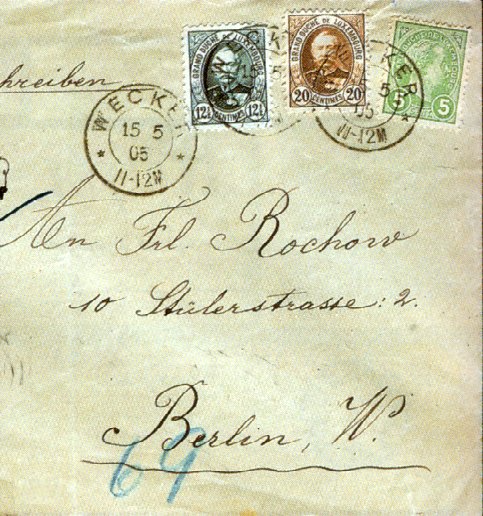 GRAND DUCHÉ DE LUXEMBOURG
12½ CENTIMES 12½
GRAND DUCHÉ DE LUXEMBOURG
20 CENTIMES 20
5 5
chreiben
WECKER
15 5
05
11-12M
WECKER
15 5
WECKER
5
05
11-12M
An Frl. Rochow
10 Stülerstrasse: 2.
Berlin, W.
69